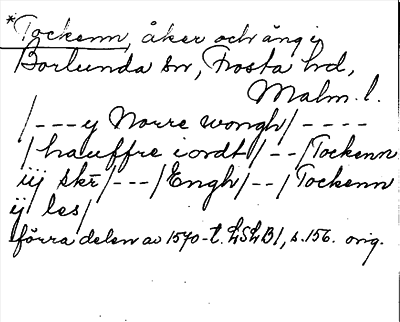 *Tockenn, åker och äng i
Borlunda sn, Frosta hd,
Malm. l.
/---y Norre wongh/----
/hauffre iordt/--/Tockenn
iij skr/---/Engh/--/Tockenn
ij les/
förra delen av 1570-t. LSLB/, s. 156. orig.